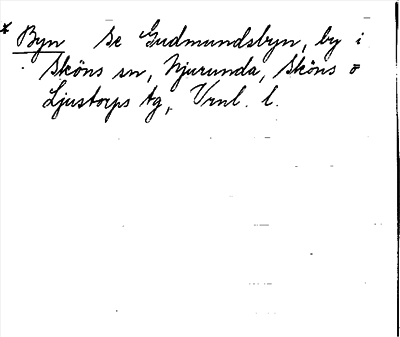 * Byn Se Gudmundsbyn, by i
Sköns sn, Njurunda, Sköns o
Ljustorps tg, Vrnl. l.